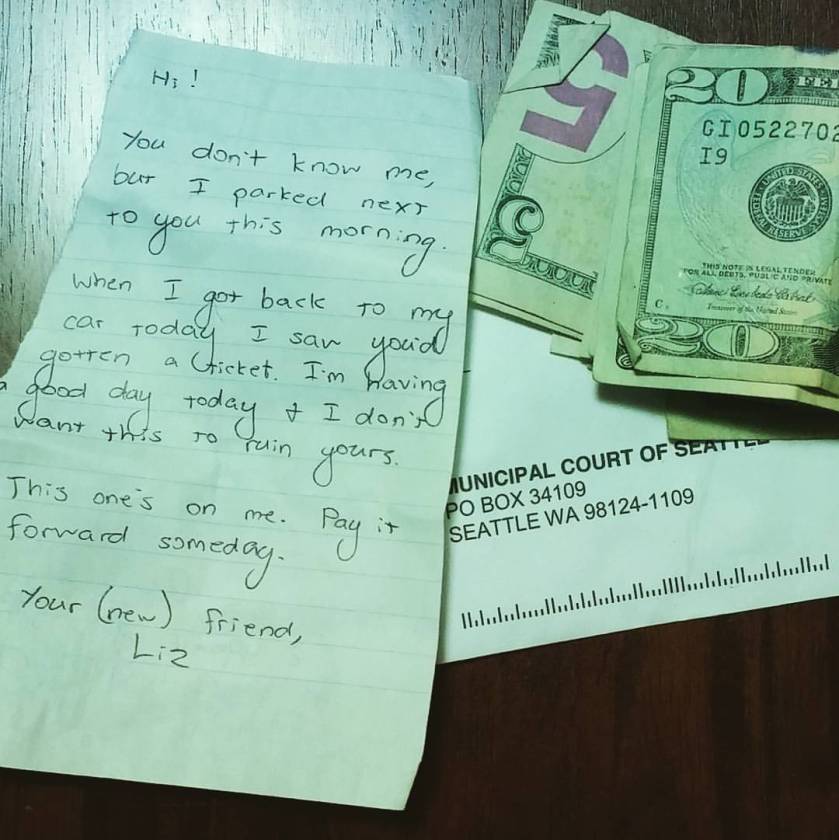 Hi!
You don't know me,
but I parked next
to you this morning.
When I got back to my
car today I saw you'd
gotten a ticket. I'm having
a good day today & I don't
want this to ruin yours.
This one's on me. Pay it
forward someday.
Your (new) friend,
Liz
5
5
20
FE
GI0522702
I9
UNITED STATES
FEDERAL RESERVE
THIS NOTE IS LEGAL TENDER
FOR ALL DEBTS, PUBLIC AND PRIVATE
Treasurer of the United States
20
MUNICIPAL COURT OF SEATTLE
PO BOX 34109
SEATTLE WA 98124-1109